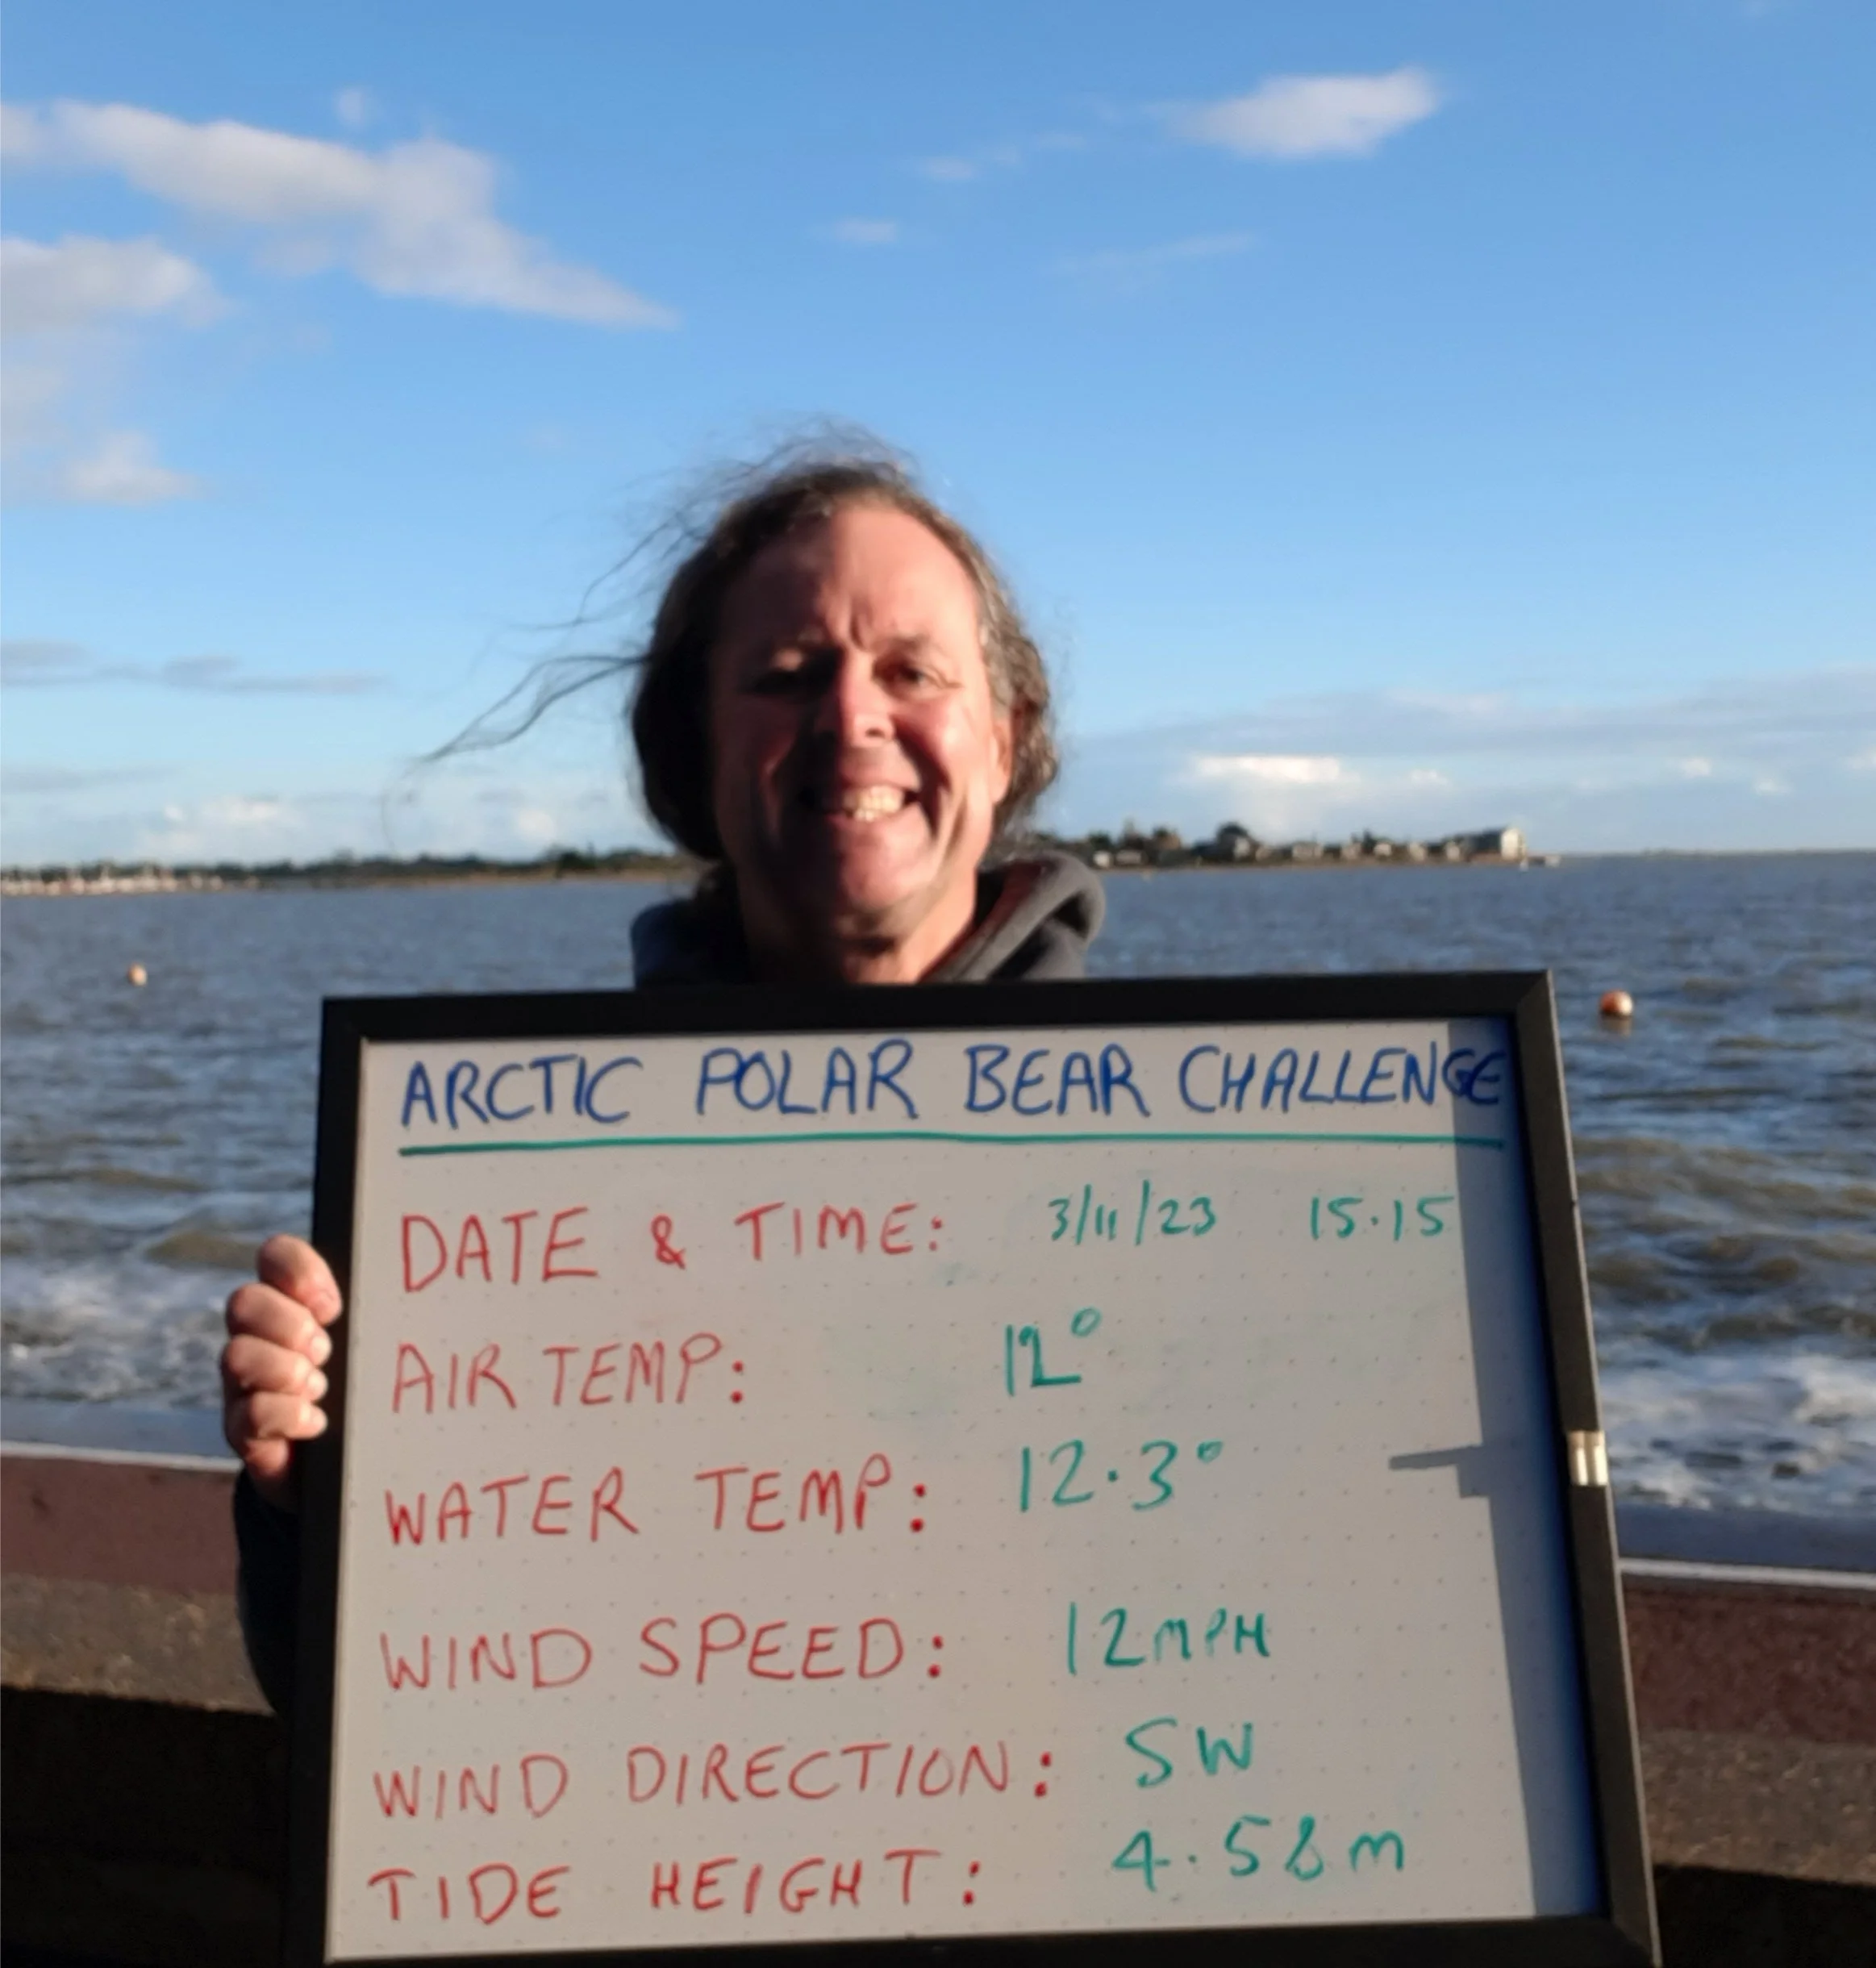 ARCTIC POLAR BEAR CHALLENGE
DATE & TIME: 3/11/23 15.15
AIR TEMP: 12°
WATER TEMP: 12.3°
WIND SPEED: 12MPH
WIND DIRECTION: SW
TIDE HEIGHT: 4.58m